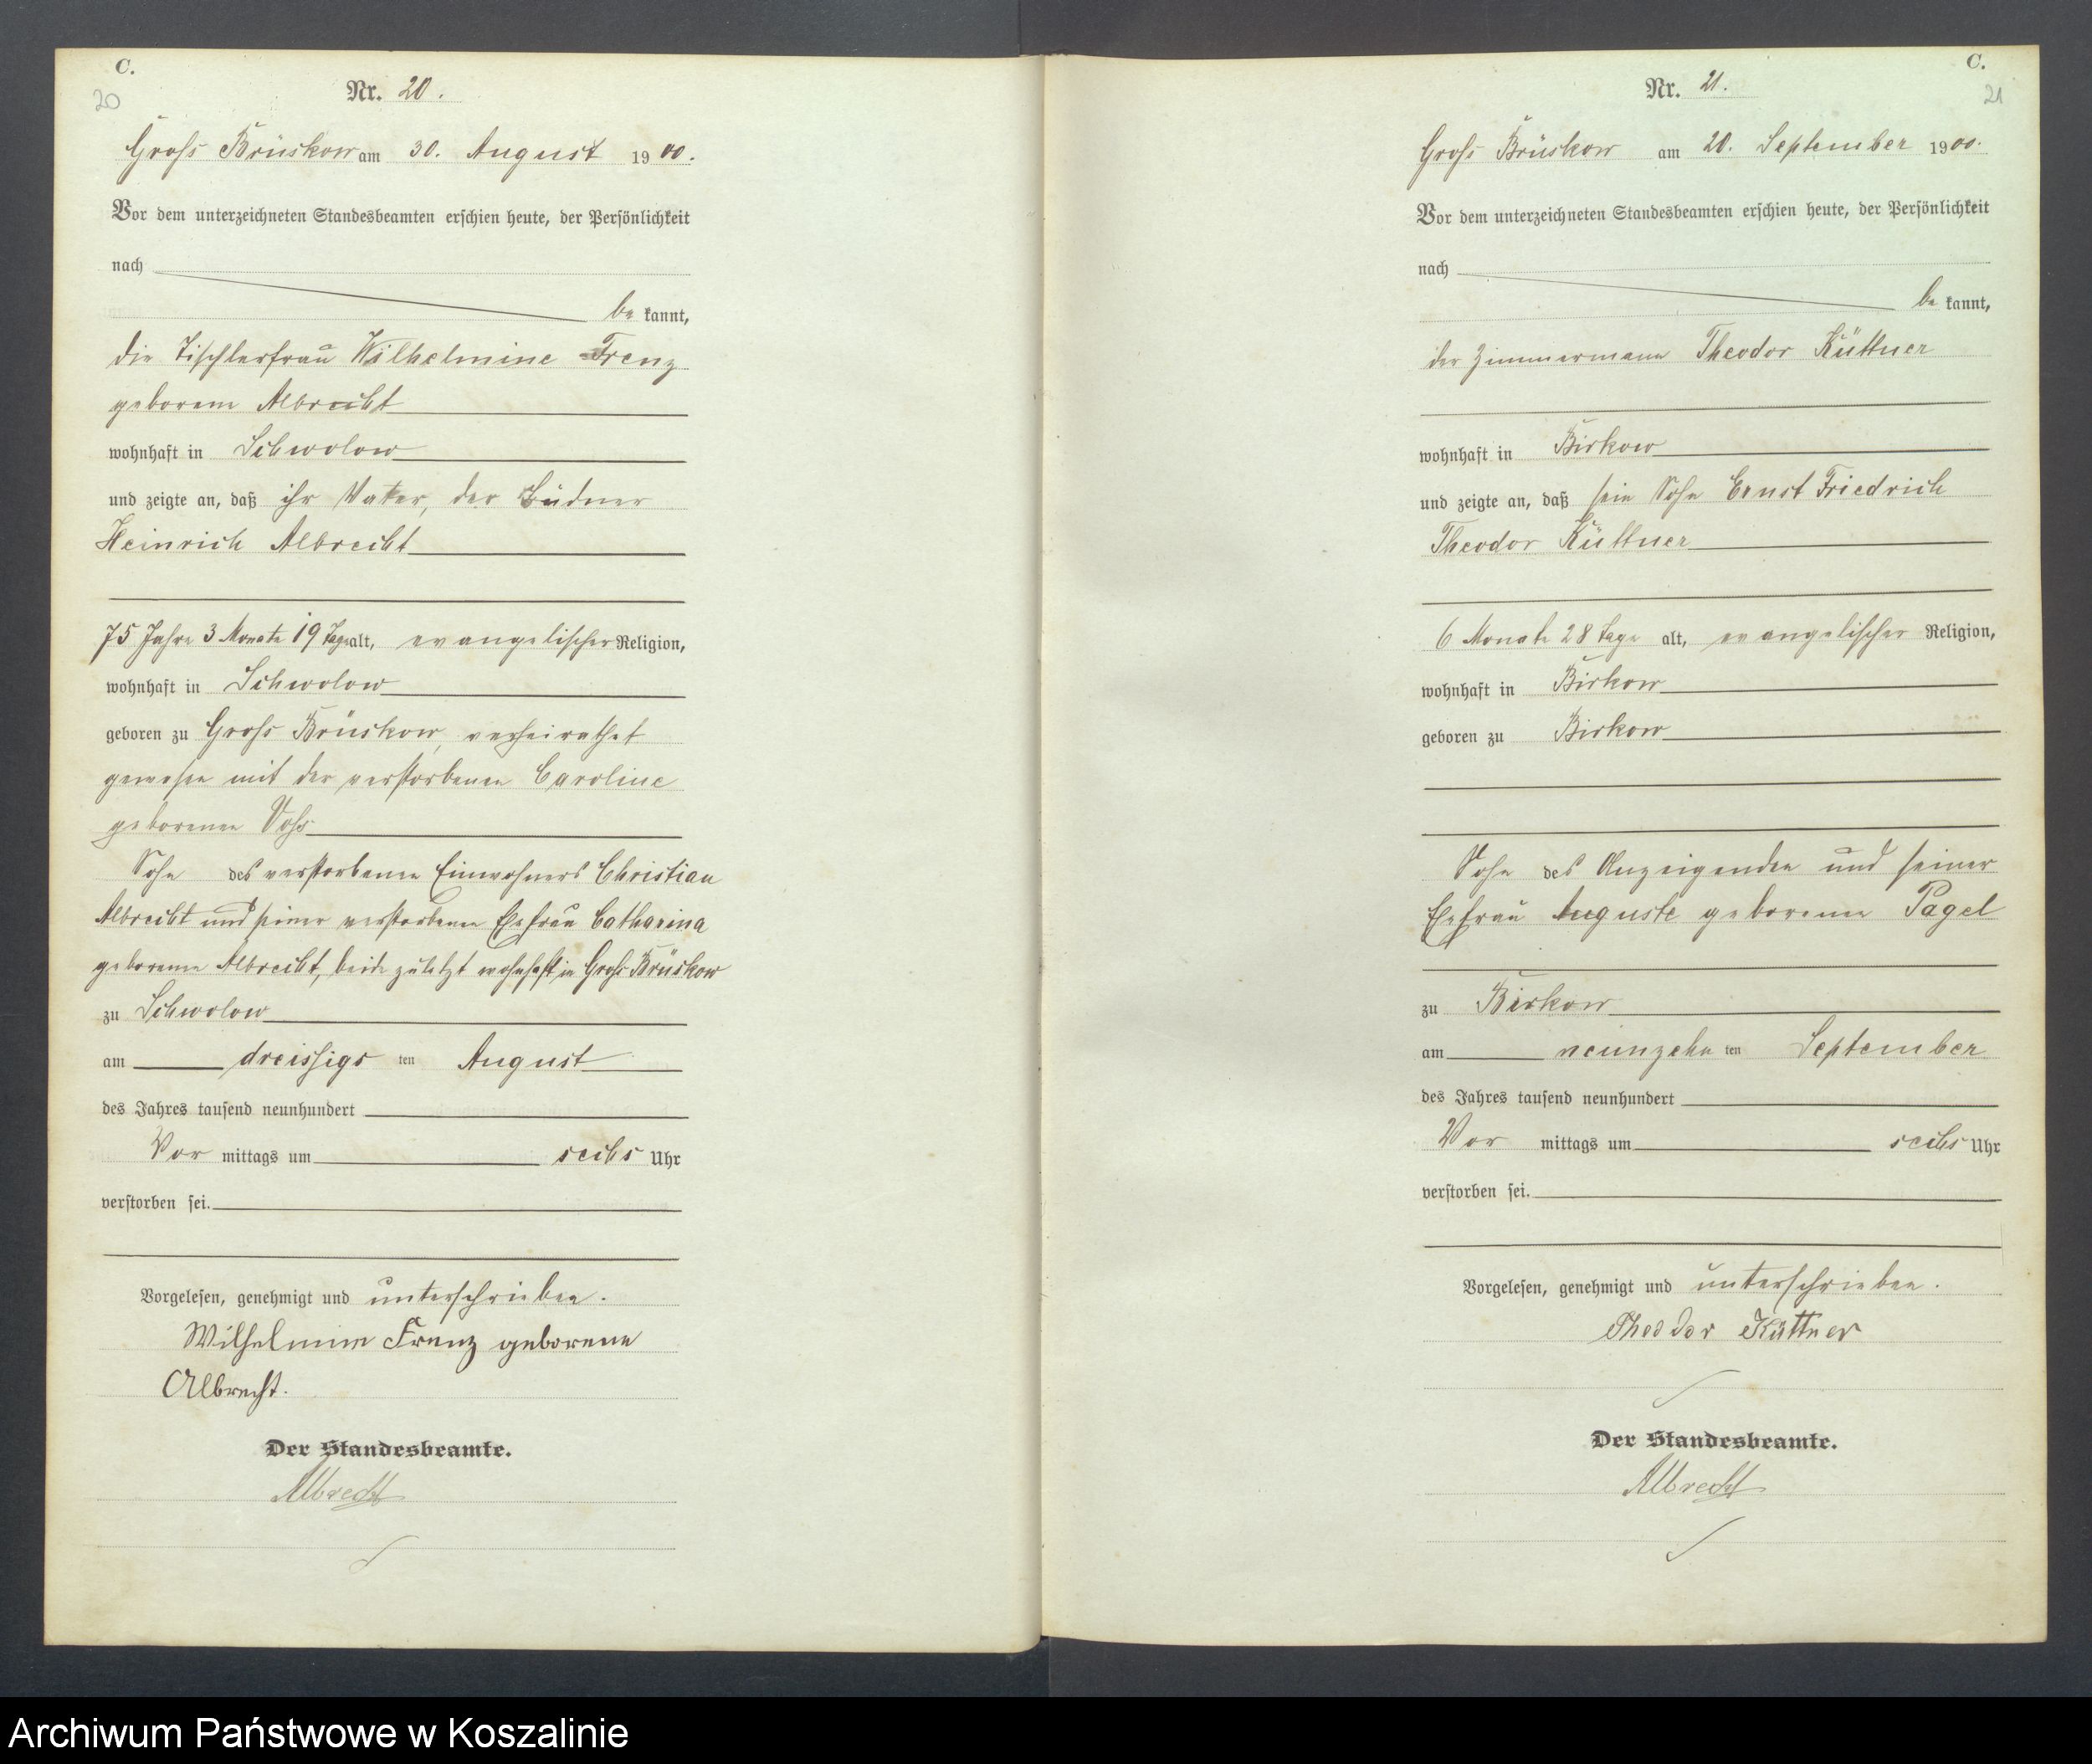 C.
20
Nr. 20.
Gross Brüskow am 30. August 1900.
Vor dem unterzeichneten Standesbeamten erschien heute, der Persönlichkeit
nach
be kannt,
die Tischlerfrau Wilhelmine Frenz
geborene Albrecht
wohnhaft in Schwolow
und zeigte an, daß ihr Vater, der Büdner
Heinrich Albrecht
75 Jahre 3 Monate 19 Tage alt, evangelischer Religion,
wohnhaft in Schwolow
geboren zu Gross Brüskow, verheirathet
gewesen mit der verstorbenen Caroline
geborenen Voss
Sohn des verstorbenen Einwohners Christian
Albrecht und seiner verstorbenen Ehefrau Catharina
geborene Albrecht, beide zuletzt wohnhaft in Gross Brüskow
zu Schwolow
am dreissigs ten August
des Jahres tausend neunhundert
Vor mittags um sechs Uhr
verstorben sei.
Vorgelesen, genehmigt und unterschrieben.
Wilhelmine Frenz geborene
Albrecht.
Der Standesbeamte.
Albrecht
C.
21
Nr. 21.
Gross Brüskow am 20. September 1900.
Vor dem unterzeichneten Standesbeamten erschien heute, der Persönlichkeit
nach
be kannt,
der Zimmermann Theodor Küttner
wohnhaft in Birkow
und zeigte an, daß sein Sohn Ernst Friedrich
Theodor Küttner
6 Monate 28 Tage alt, evangelischer Religion,
wohnhaft in Birkow
geboren zu Birkow
Sohn des Anzeigenden und seiner
Ehefrau Auguste geborene Pagel
zu Birkow
am neunzehn ten September
des Jahres tausend neunhundert
Vor mittags um sechs Uhr
verstorben sei.
Vorgelesen, genehmigt und unterschrieben.
Theodor Küttner
Der Standesbeamte.
Albrecht
Archiwum Państwowe w Koszalinie